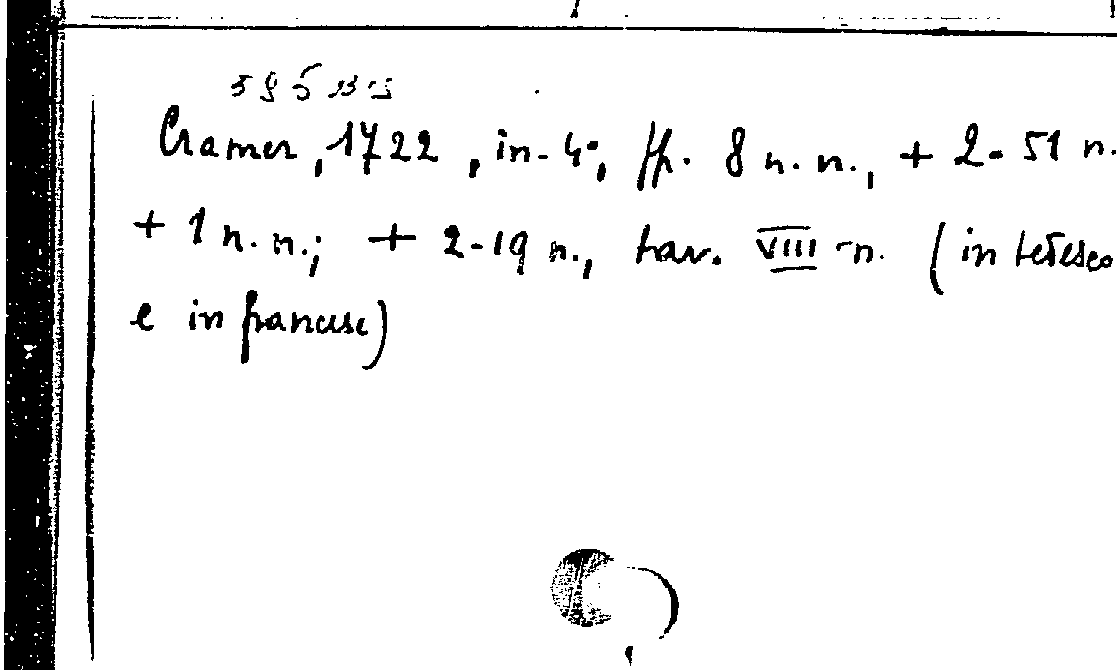 Cramer, 1722, in-4°, ff. 8 n. n., + 2-51 n.
+ 1 n. n.; + 2-19 n., tav. VIII n. (in tedesco
e in francese)